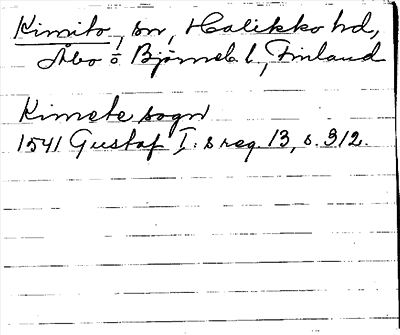 Kimito, sn, Halikko hd,
Åbo o. Björneb. l., Finland
Kimete sogn
1541 Gustaf I:s reg. 13, s. 312.